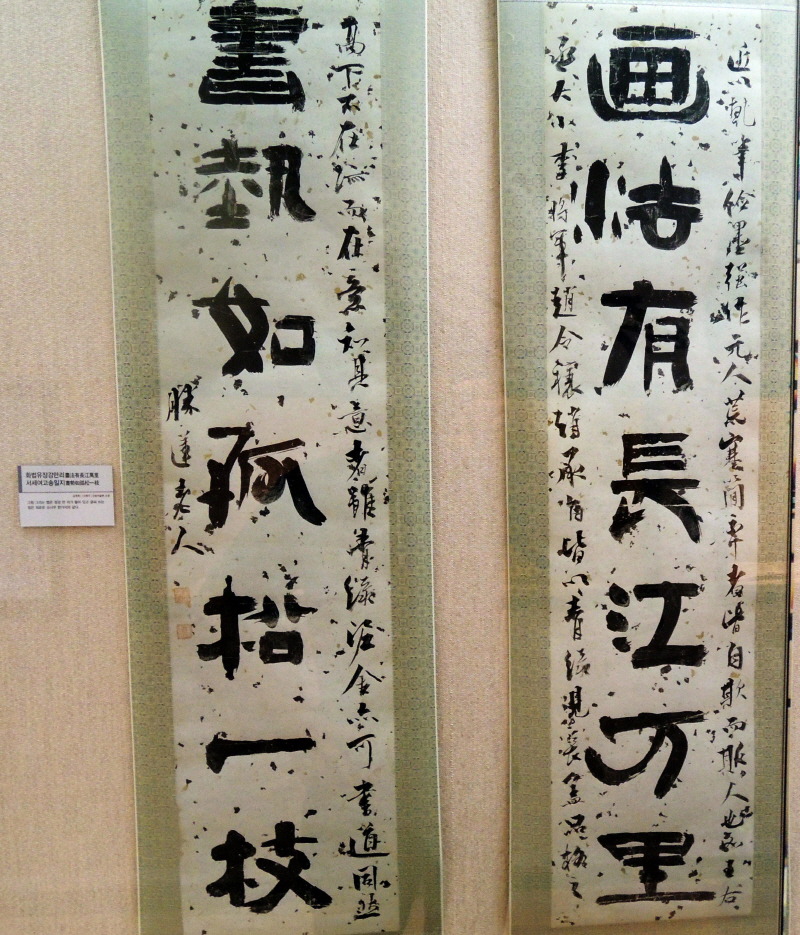 近以乾筆儉墨强作元人荒寒簡率者皆自欺而欺人也如王右
画法有長江万里
丞大小李將軍趙令穰趙承旨皆以青綠見長盖品格之
高下不在迹而在意知其意者雖青綠泥金亦可書道同然
書埶如孤松一枝
勝蓮老人
화법유장강만리畵法有長江萬里
서세여고송일지書勢如孤松一枝